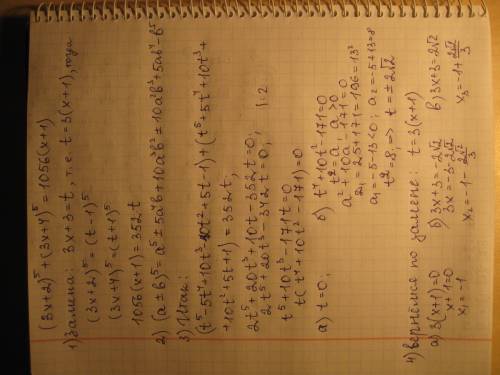 (3x+2)⁵ + (3x+4)⁵ = 1056(x+1)
1) Замена: 3x+3=t, т.е. t=3(x+1), тогда
(3x+2)⁵ = (t-1)⁵
(3x+4)⁵ = (t+1)⁵
1056(x+1) = 352t
2) (a±b)⁵ = a⁵ ± 5a⁴b + 10a³b² ± 10a²b³ + 5ab⁴ - b⁵
3) Итак:
(t⁵-5t⁴+10t³-10t²+5t-1) + (t⁵+5t⁴+10t³+
+10t²+5t+1) = 352t,
2t⁵+20t³+10t-352t=0;
2t⁵+20t³-342t=0; |:2
t⁵+10t³-171t=0
t(t⁴+10t²-171)=0
a) t=0;
б) t⁴+10t²-171=0
t²=a, a>0
a²+10a-171=0
D₁=25+171=196=13²
a₁=-5-13<0; a₂=-5+13=8
t²=8, => t=±2√2
4) Вернёмся по замене: t=3(x+1)
a) 3(x+1)=0
x+1=0
x₁=-1
б) 3x+3=-2√2
3x=-3-2√2
x₂=-1-2√2/3
в) 3x+3=2√2
x₃=-1+2√2/3